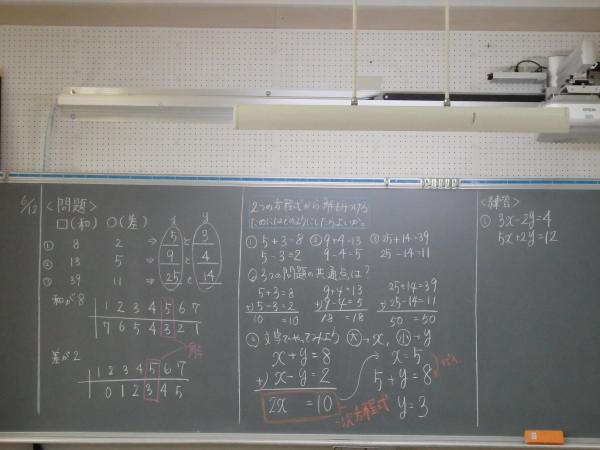 6/12
<問題>
□(和) ○(差) x y
① 8 2 ⇒ 5 と 3
② 13 5 ⇒ 9 と 4
③ 39 11 ⇒ 25 と 14
和が8
1 2 3 4 5 6 7
7 6 5 4 3 2 1
解
差が2
1 2 3 4 5 6 7
0 1 2 3 4 5
2つの方程式から解を見つける
ためにはどのようにしたらよいか。
① 5+3=8 ② 9+4=13 ③ 25+14=39
5-3=2 9-4=5 25-14=11
② 3つの問題の共通点は?
5+3=8 9+4=13 25+14=39
+) 5-3=2 +) 9-4=5 +) 25-14=11
10 =10 18 =18 50 =50
文字でやってみよう 大→x, 小→y
x+y=8
+) x-y=2
2x =10
一次方程式
x=5
5+y=8
y=3
<練習>
① 3x-2y=4
5x+2y=12